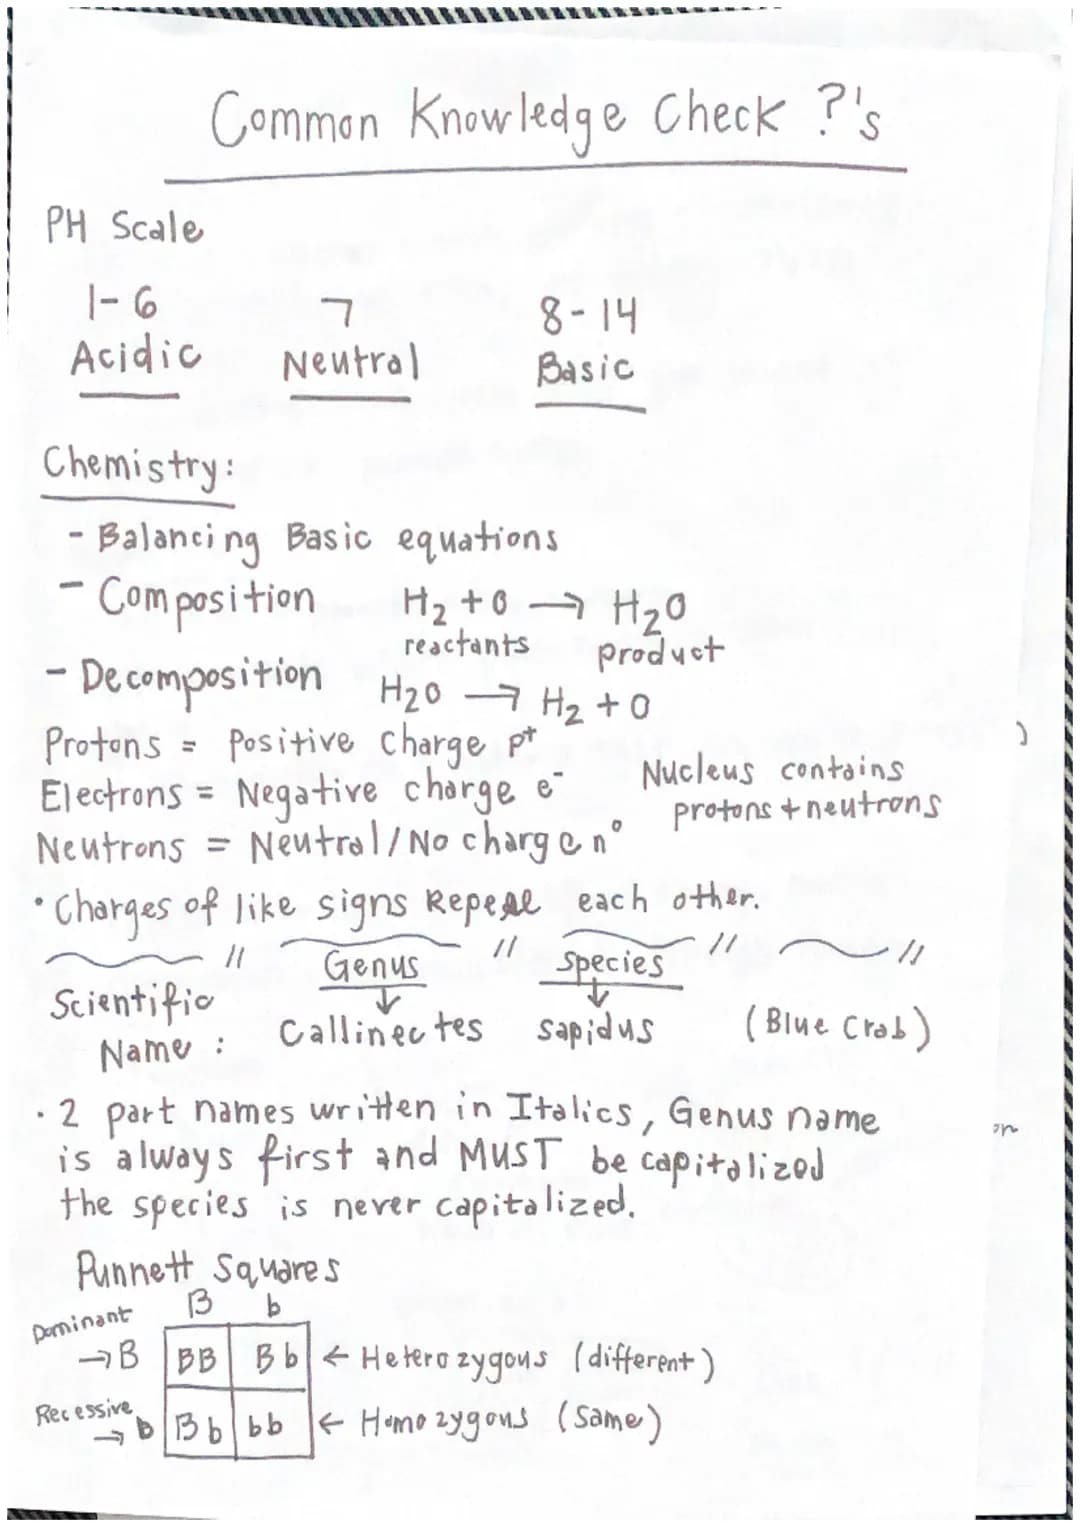 Common Knowledge Check ?'s
PH Scale
1-6 7 8-14
Acidic Neutral Basic
Chemistry:
- Balancing Basic equations
- Composition H₂ + O → H₂O
reactants product
- Decomposition H₂O → H₂ + O
Protons = Positive Charge p⁺
Electrons = Negative charge e⁻ Nucleus contains
protons + neutrons
Neutrons = Neutral/No charge n°
• Charges of like signs Repel each other.
Genus Species
Scientific
Name : Callinectes sapidus (Blue Crab)
• 2 part names written in Italics, Genus name
is always first and MUST be capitalized
the species is never capitalized.
Punnett Squares
B b
Dominant
→ B BB Bb ← Heterozygous (different)
Recessive
→ b Bb bb ← Homozygous (Same)